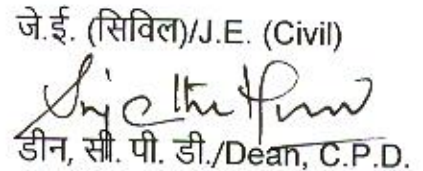 जे.ई. (सिविल)/J.E. (Civil)
डीन, सी. पी. डी./Dean, C.P.D.